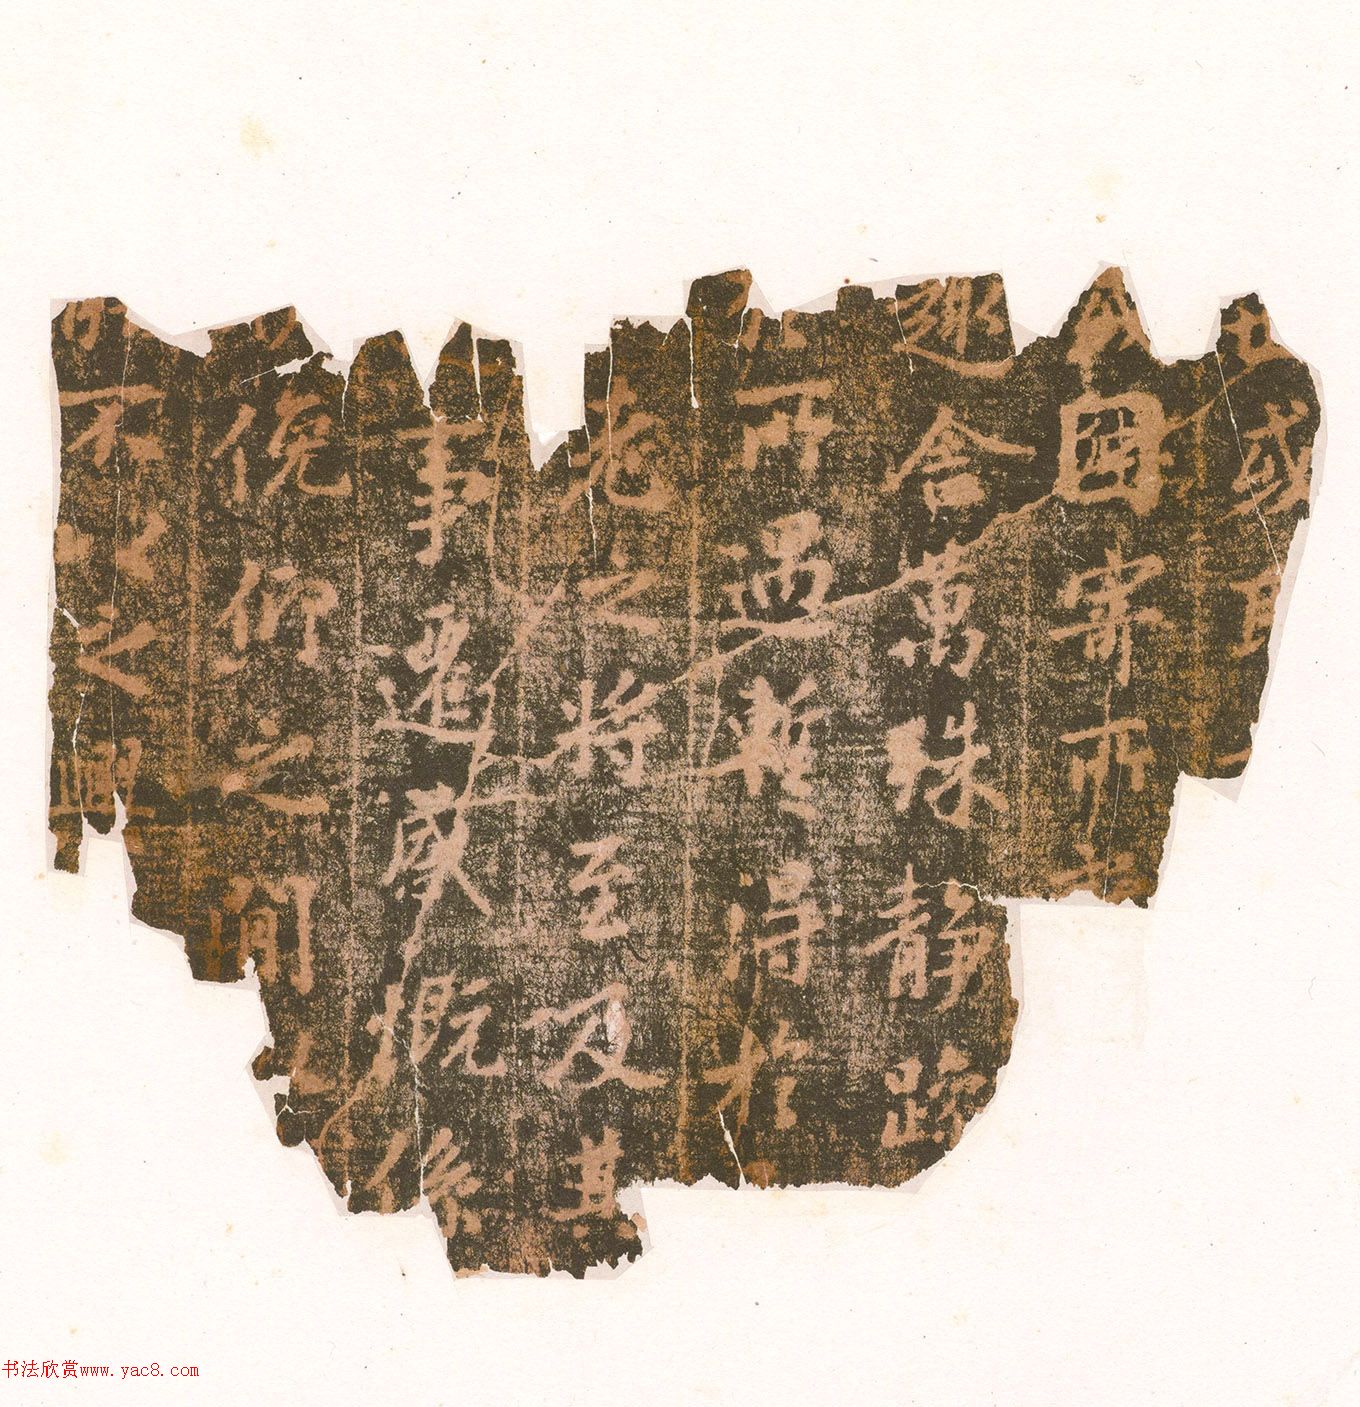 世或取
因寄所託
趣舍萬殊靜躁
於所遇蹔得於
老之將至及其
事遷感慨係
俛仰之間以
能不以之興
书法欣赏www.yac8.com